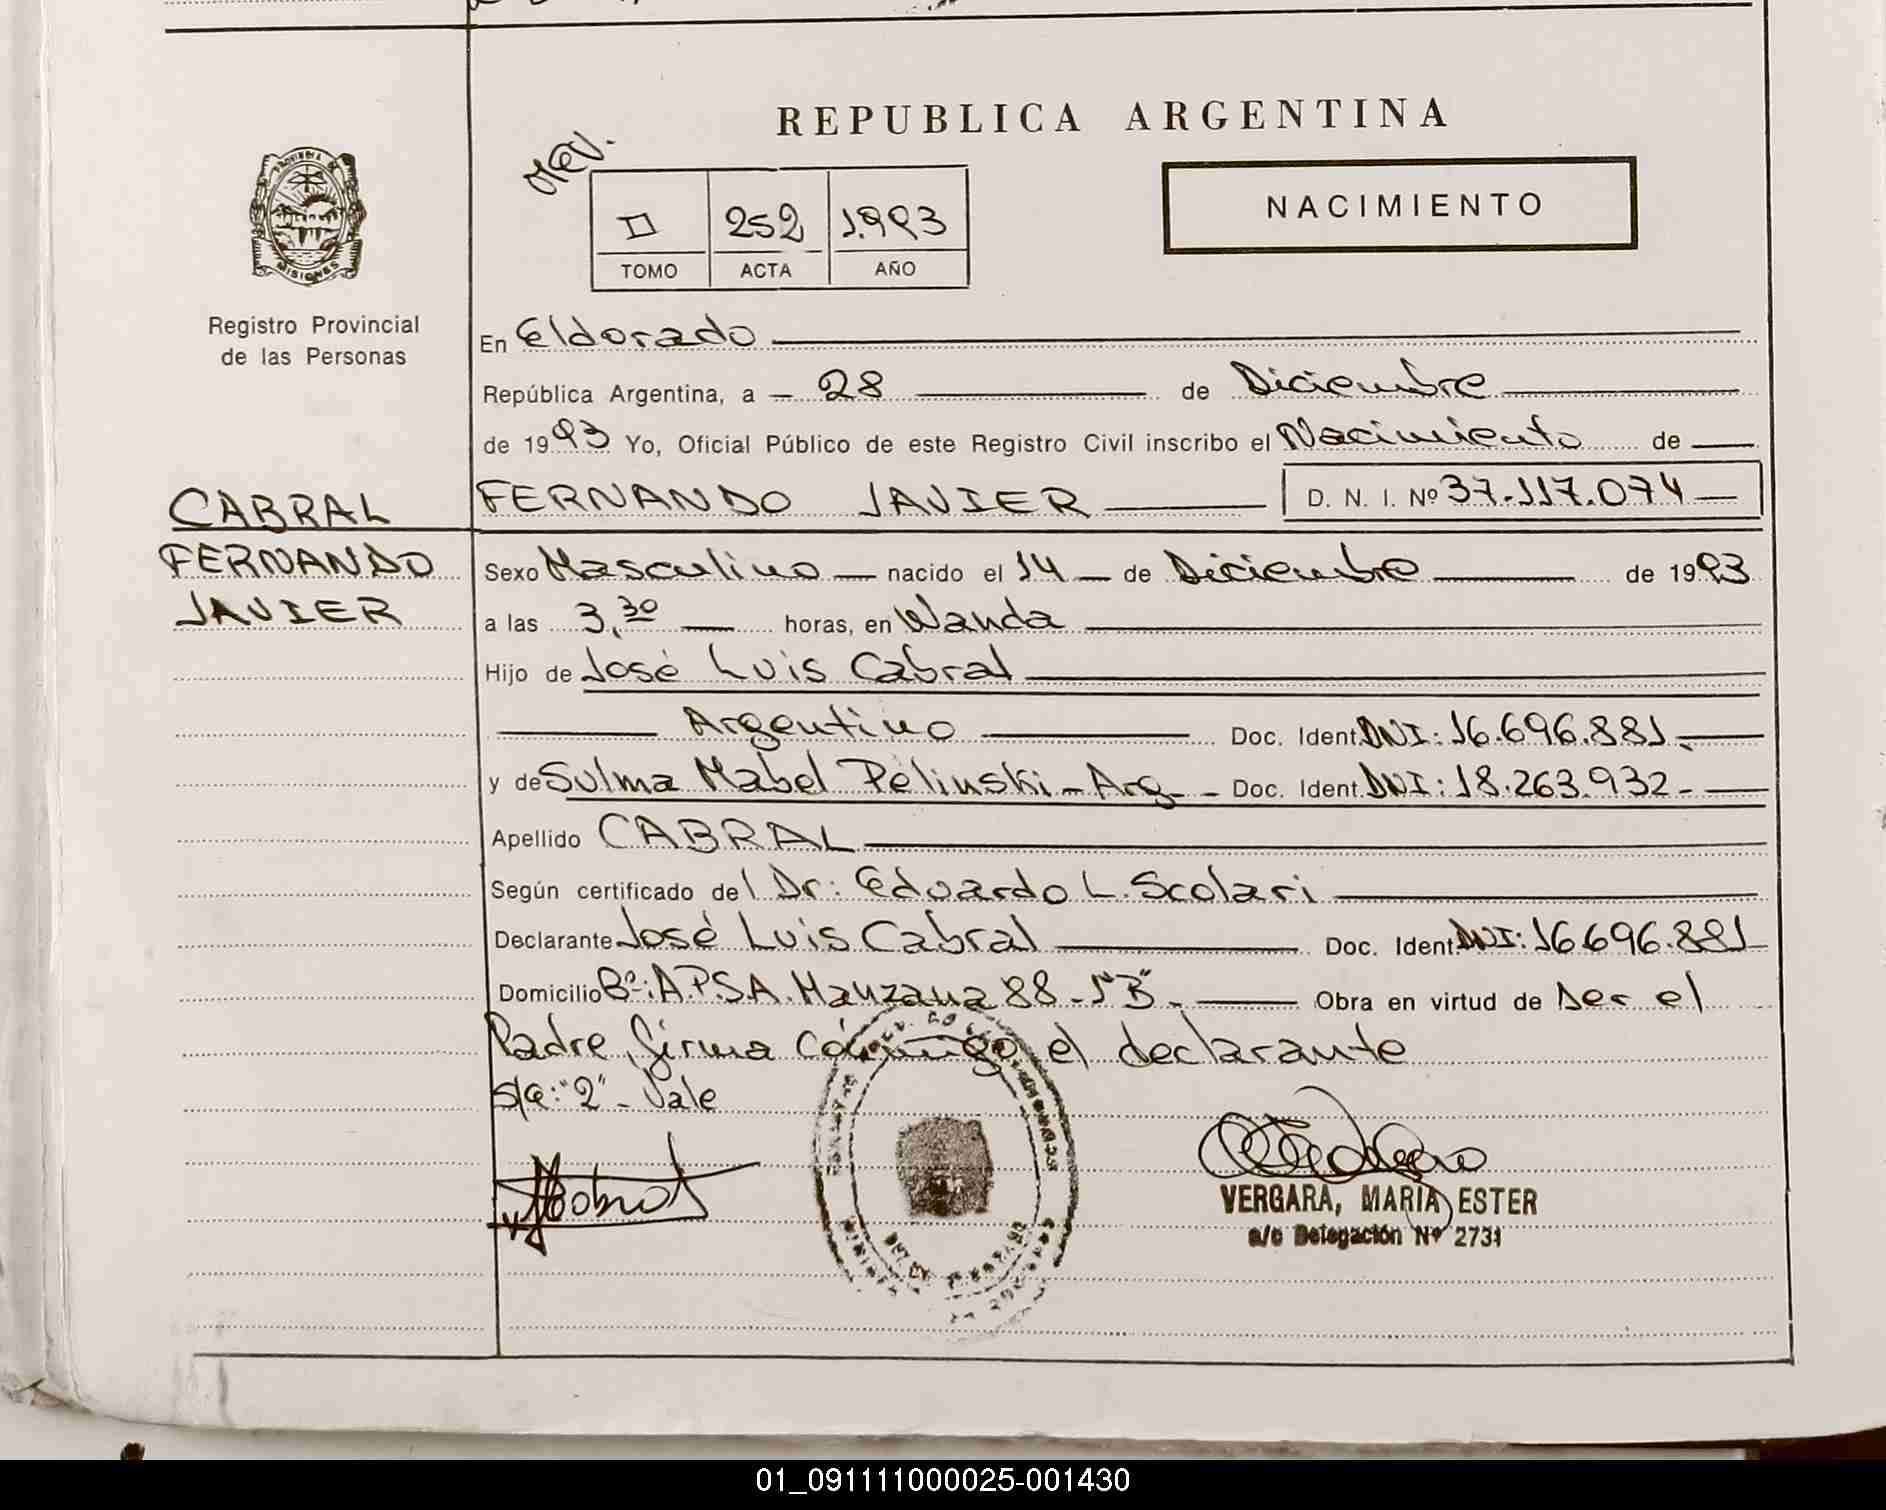 REPUBLICA ARGENTINA
PROVINCIA DE
MISIONES
Registro Provincial
de las Personas
II 252 1.993
TOMO ACTA AÑO
NACIMIENTO
En Eldorado
República Argentina, a - 28 de Diciembre
de 1993 Yo, Oficial Público de este Registro Civil inscribo el Nacimiento de
CABRAL FERNANDO JAVIER D. N. I. Nº 37.117.074
FERNANDO Sexo Masculino nacido el 14 de Diciembre de 1993
JAVIER a las 3,30 horas, en Wanda
Hijo de José Luis Cabral
Argentino Doc. Ident. DNI: 16.696.881.
y de Sulma Mabel Pelinski - Arg - Doc. Ident. DNI: 18.263.932 -
Apellido CABRAL
Según certificado del Dr: Eduardo L. Scolari
Declarante José Luis Cabral Doc. Ident. DNI: 16.696.881
Domicilio Bº: A.P.S.A. Manzana 88 - "B" - Obra en virtud de Ser el
Padre, firma conmigo el declarante
S/e: "2" - Vale
VERGARA, MARIA ESTER
a/c Delegación Nº 2731
01_091111000025-001430